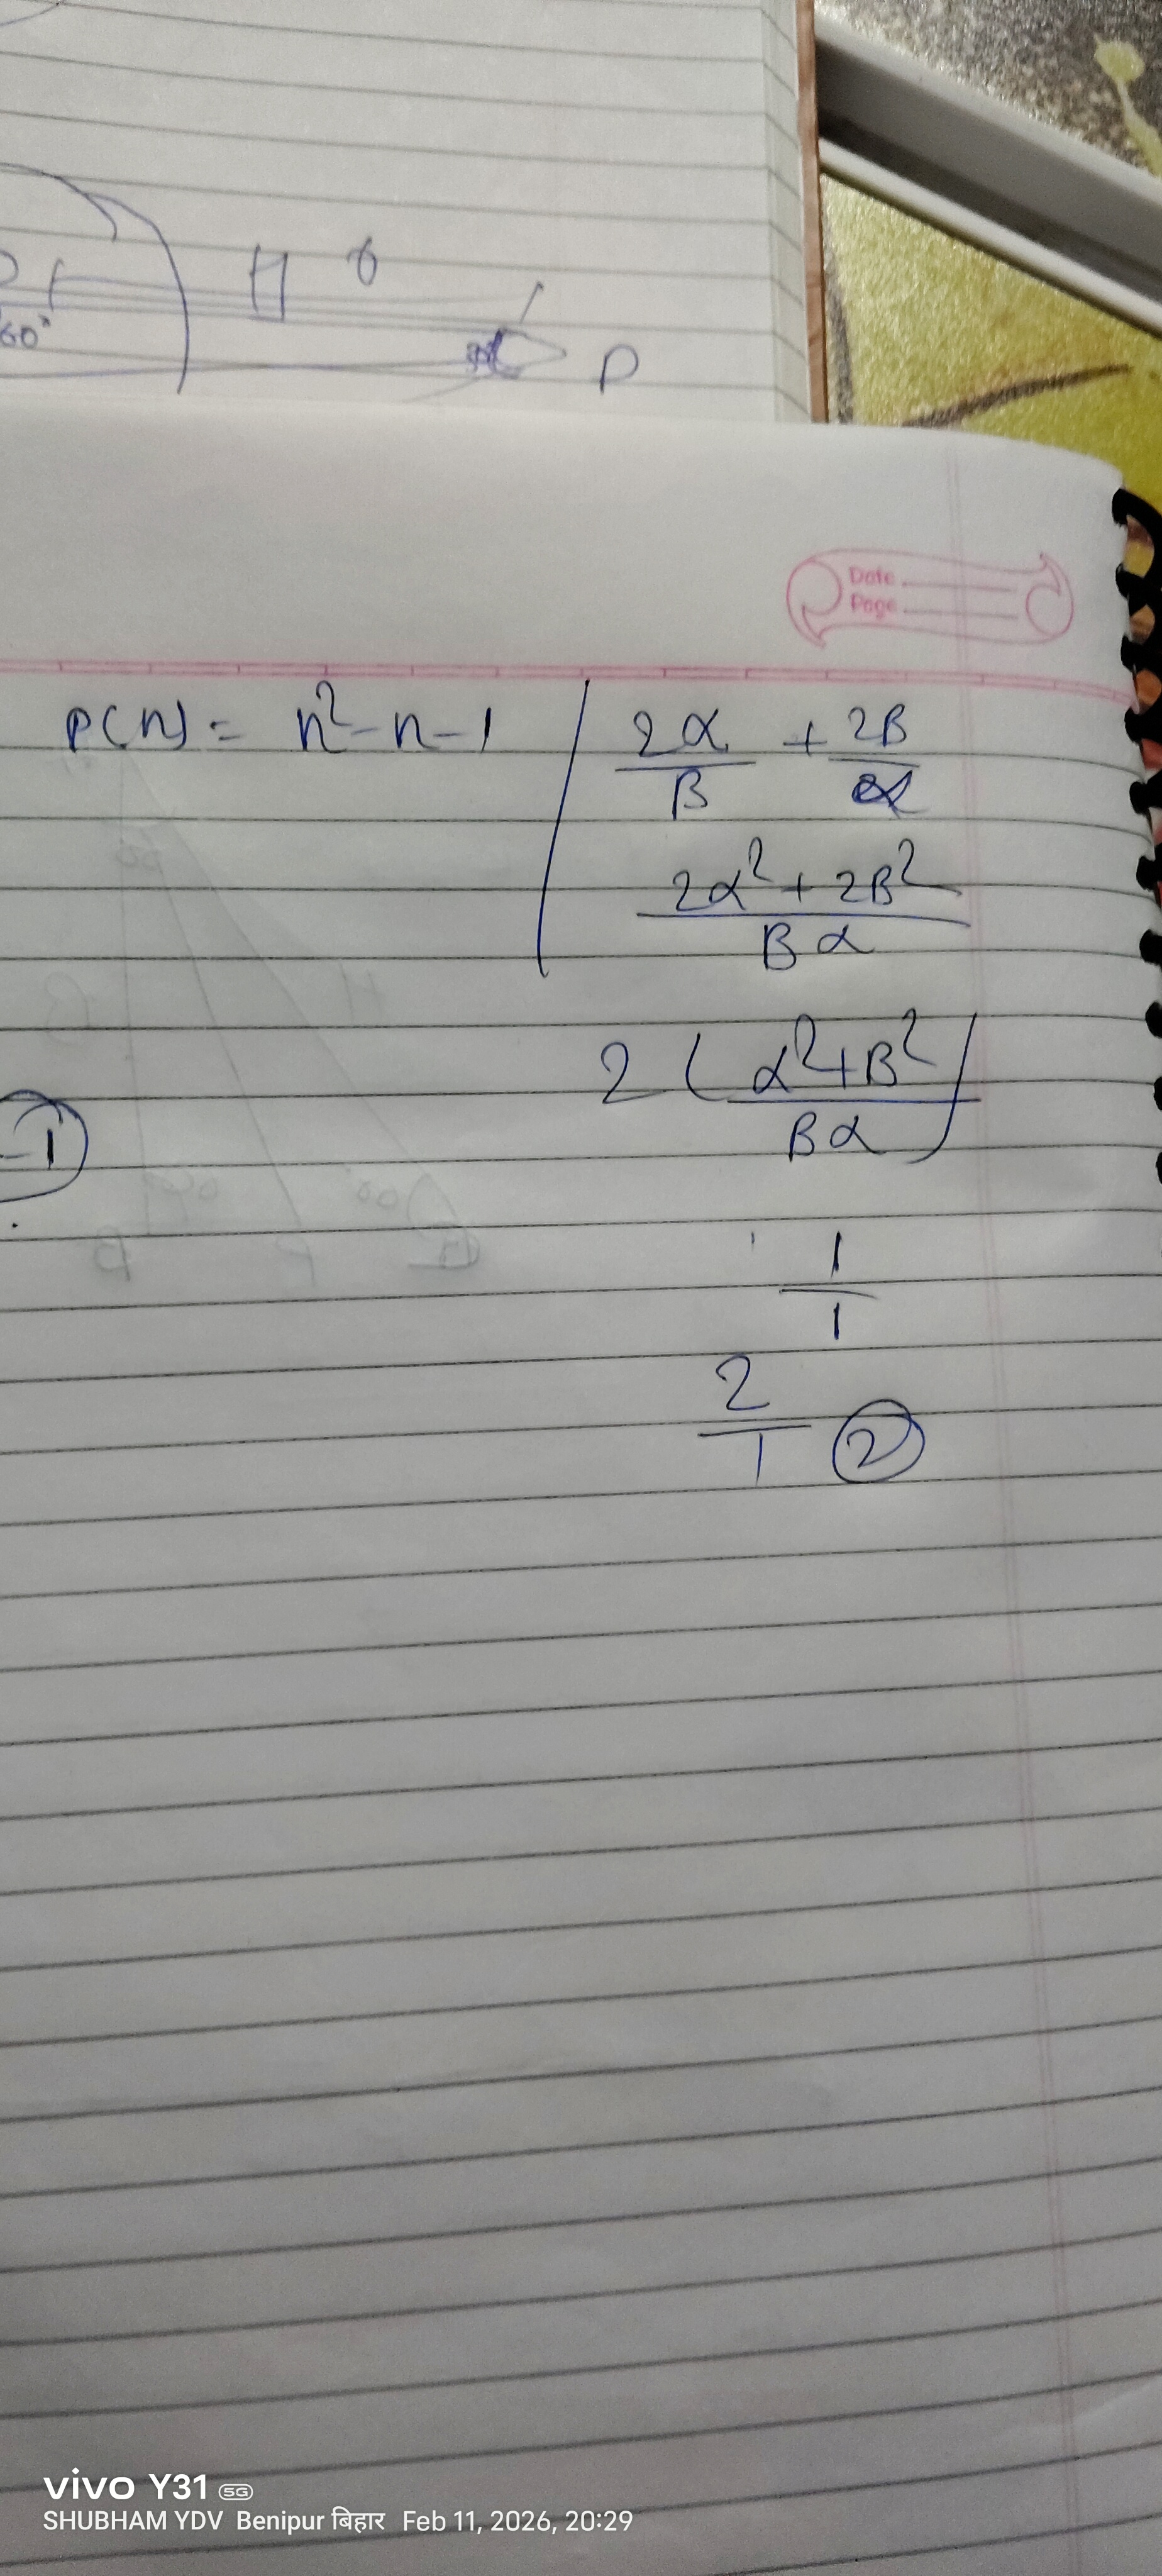 H 6
60°
P
Date
Page
P(n) = n² - n - 1
2α/β + 2β/α
2α² + 2β² / βα
2 ( α² + β² / βα )
-1
1/1
2/1 2
vivo Y31 5G
SHUBHAM YDV Benipur बिहार Feb 11, 2026, 20:29